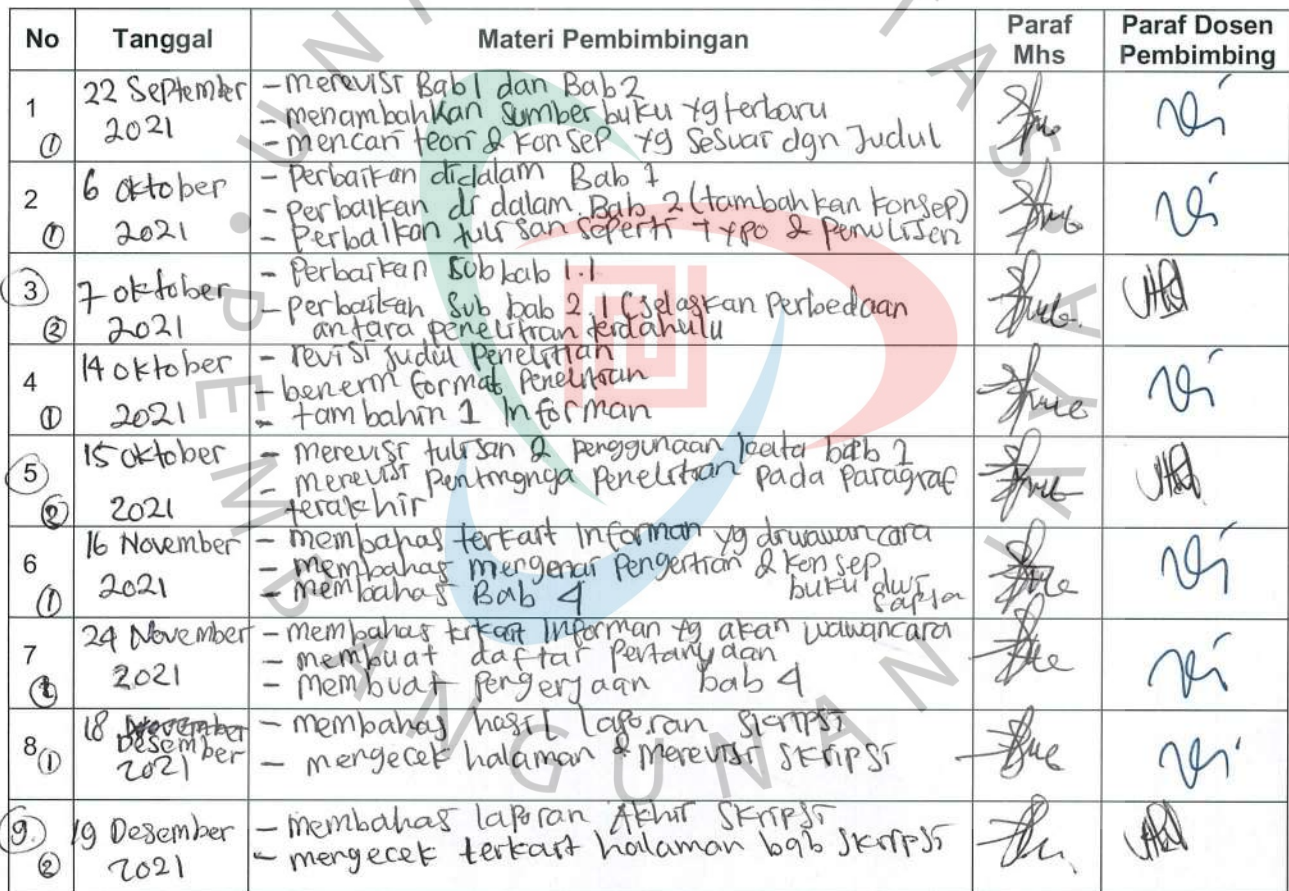 No Tanggal Materi Pembimbingan Paraf Mhs Paraf Dosen Pembimbing
1 22 September - merevisi Bab 1 dan Bab 2
① 2021 - menambahkan sumber buku yg terbaru
- mencari teori & konsep yg sesuai dgn Judul
2 6 Oktober - Perbaikan didalam Bab 1
① 2021 - Perbaikan di dalam Bab 2 (tambahkan konsep)
- Perbaikan tulisan seperti typo & penulisan
3 7 oktober - Perbaikan Sub bab 1.1
② 2021 - Perbaikan Sub bab 2.1 (jelaskan Perbedaan
antara penelitian terdahulu
4 14 oktober - revisi judul Penelitian
① 2021 - benerin format Penelitian
- tambahin 1 Informan
5 15 oktober - merevisi tulisan & penggunaan kata bab 1
② 2021 - merevisi Pentingnya Penelitian pada Paragraf
- terakhir
6 16 November - membahas terkait Informan yg diwawancara
① 2021 - membahas mengenai Pengertian & konsep
- membahas Bab 4 buku dwi
7 24 November - membahas terkait Informan yg akan wawancara
2021 - membuat daftar Pertanyaan
- membuat Pengerjaan bab 4
8 18 November - membahas hasil laporan skripsi
① Desember 2021 - mengecek halaman & Merevisi Skripsi
9. 19 Desember - membahas laporan Akhir Skripsi
② 2021 - mengecek terkait halaman bab skripsi
UNIVERSITAS
PEMBANGUNAN
JAYA